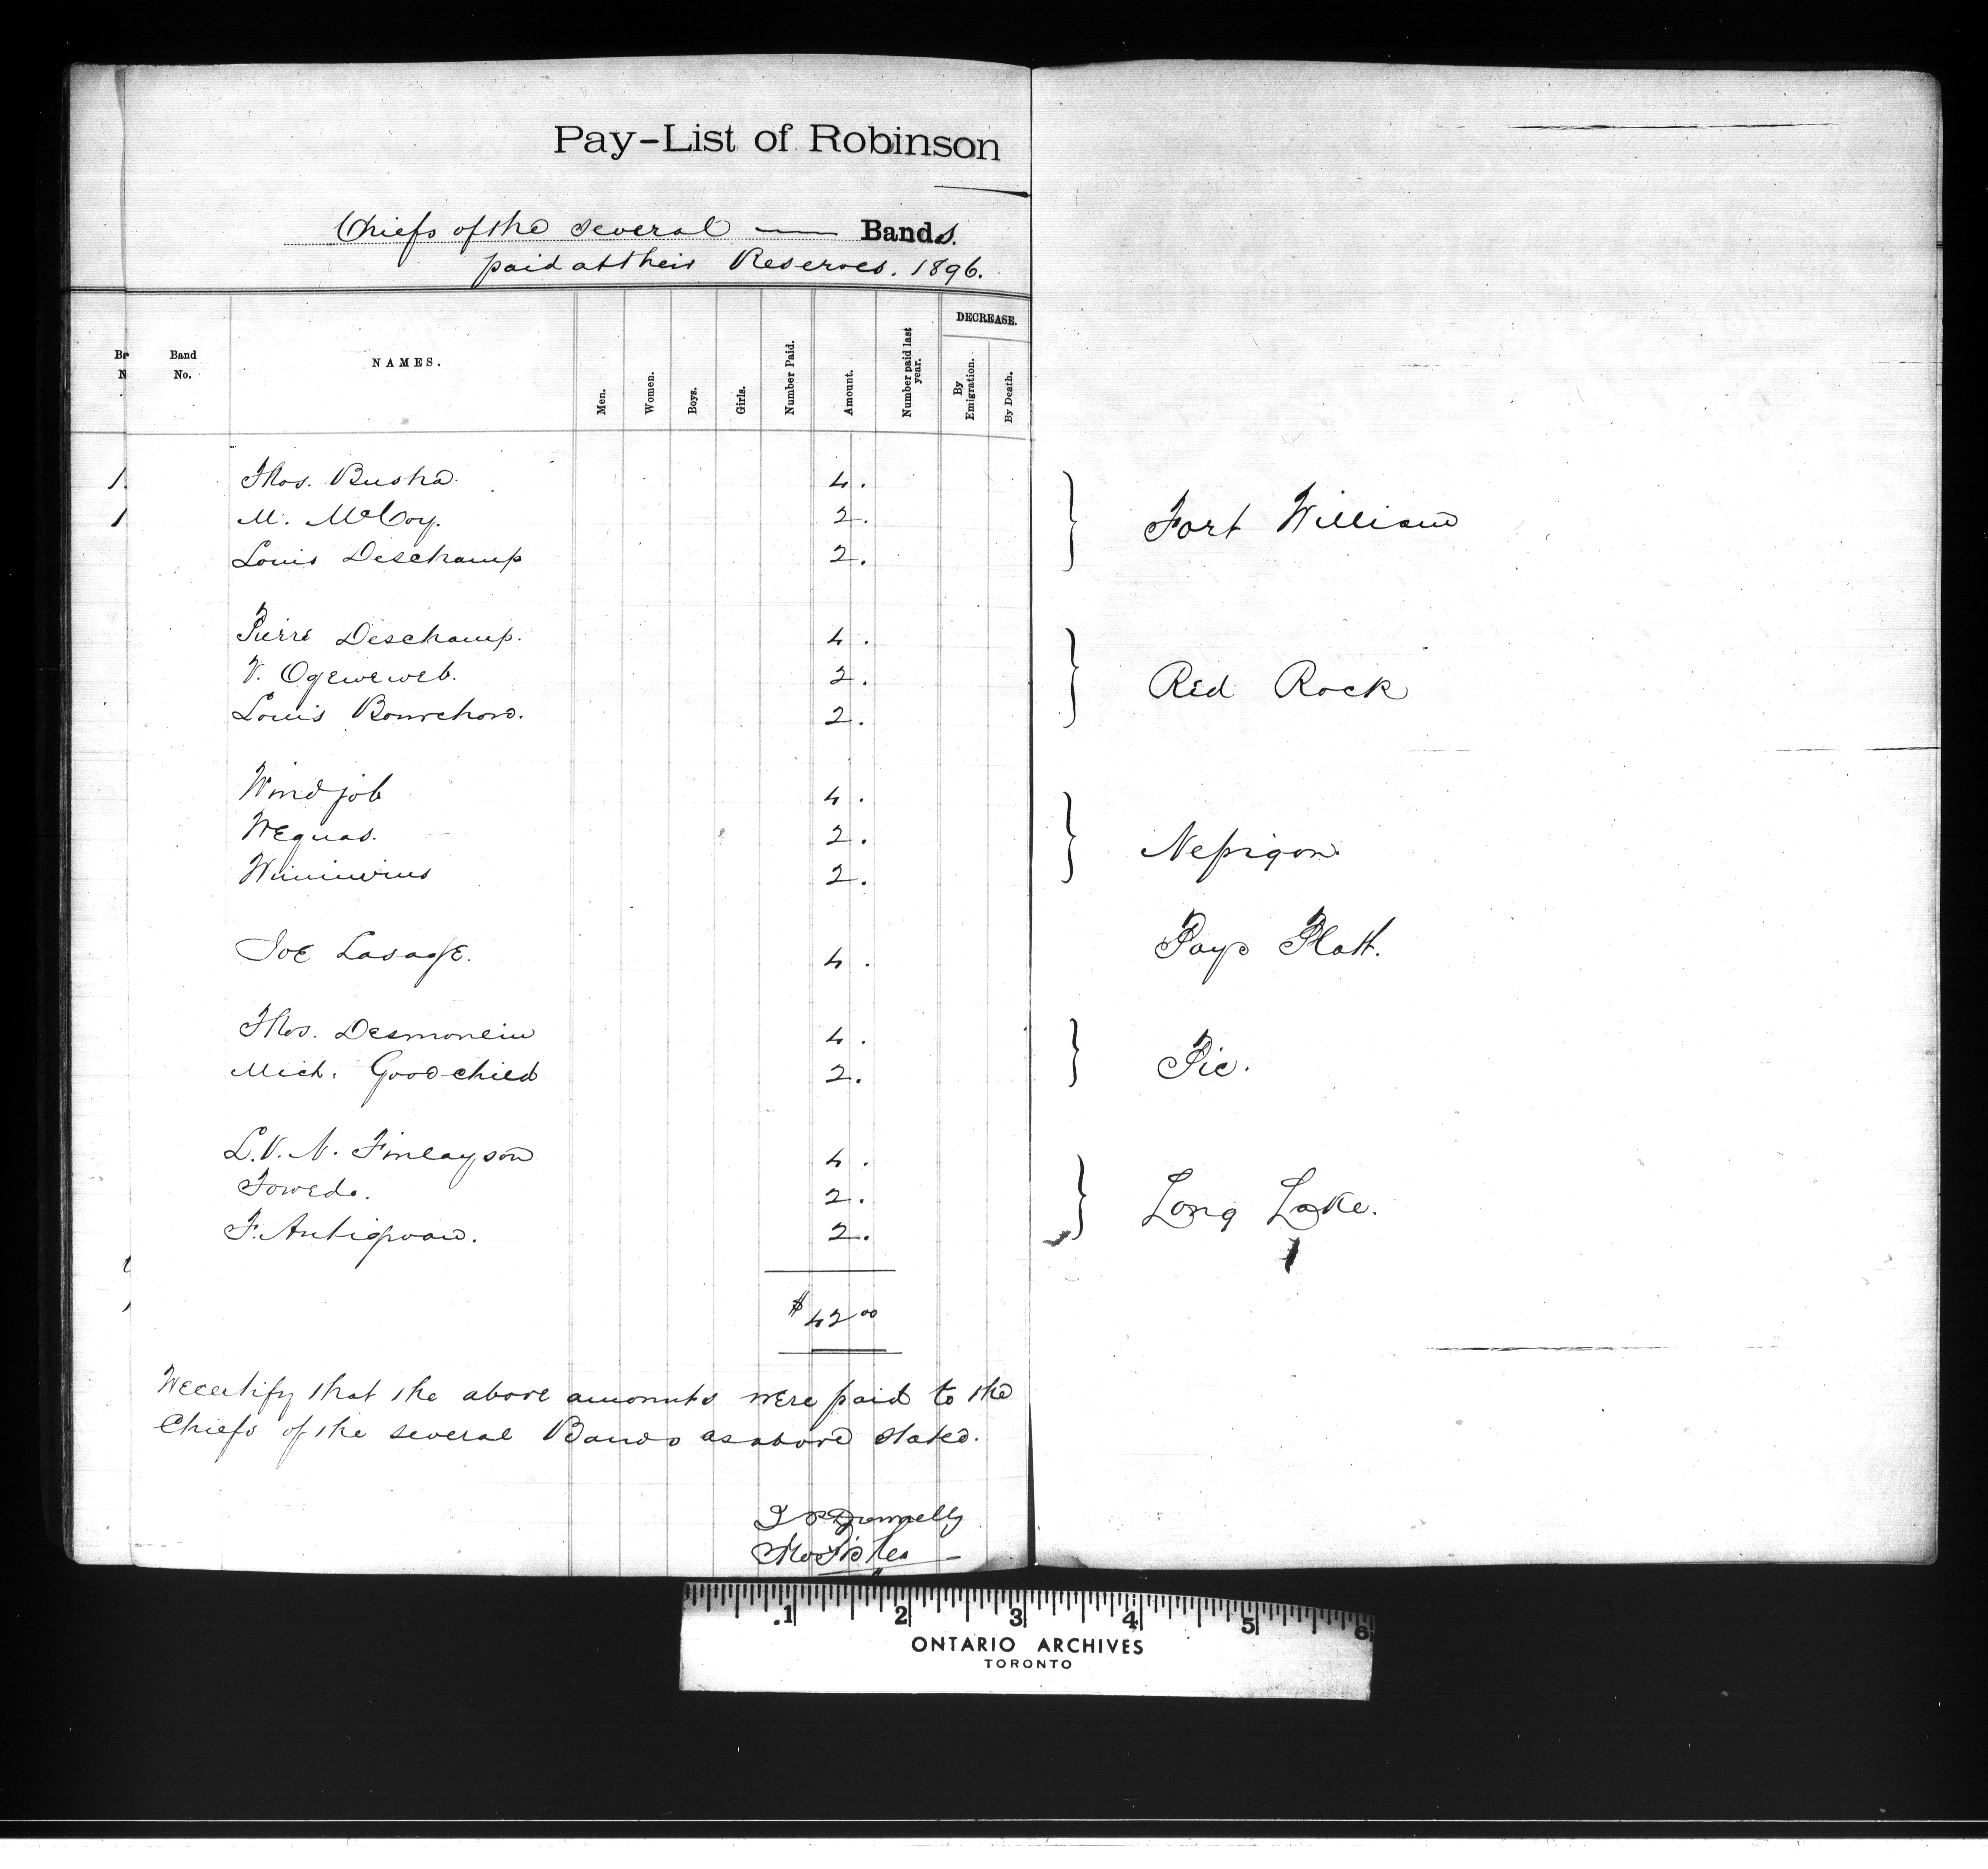 Pay-List of Robinson
Chiefs of the several — Bands.
paid at their Reserves. 1896.
Band No.
NAMES.
Men.
Women.
Boys.
Girls.
Number Paid.
Amount.
Number paid last year.
DECREASE.
By Emigration.
By Death.
Thos. Busha. 4. } Fort William
M. McCoy. 2.
Louis Deschamp 2.
Pierre Deschamp. 4. } Red Rock
V. Ogeweweb. 2.
Louis 2.
Windjob 4. } Nepigon
Wequas. 2.
2.
Joe Lasage. 4. Pays Platt.
Thos. Desmonlin 4. } Pic.
Mich. Goodchild 2.
L.V.N. Finlayson 4. } Long Lake.
2.
F. 2.
$42 00
We certify that the above amounts were paid to the
Chiefs of the several Bands as above stated.
J P Donnelly
ONTARIO ARCHIVES
TORONTO
.1 2 3 4 5 6